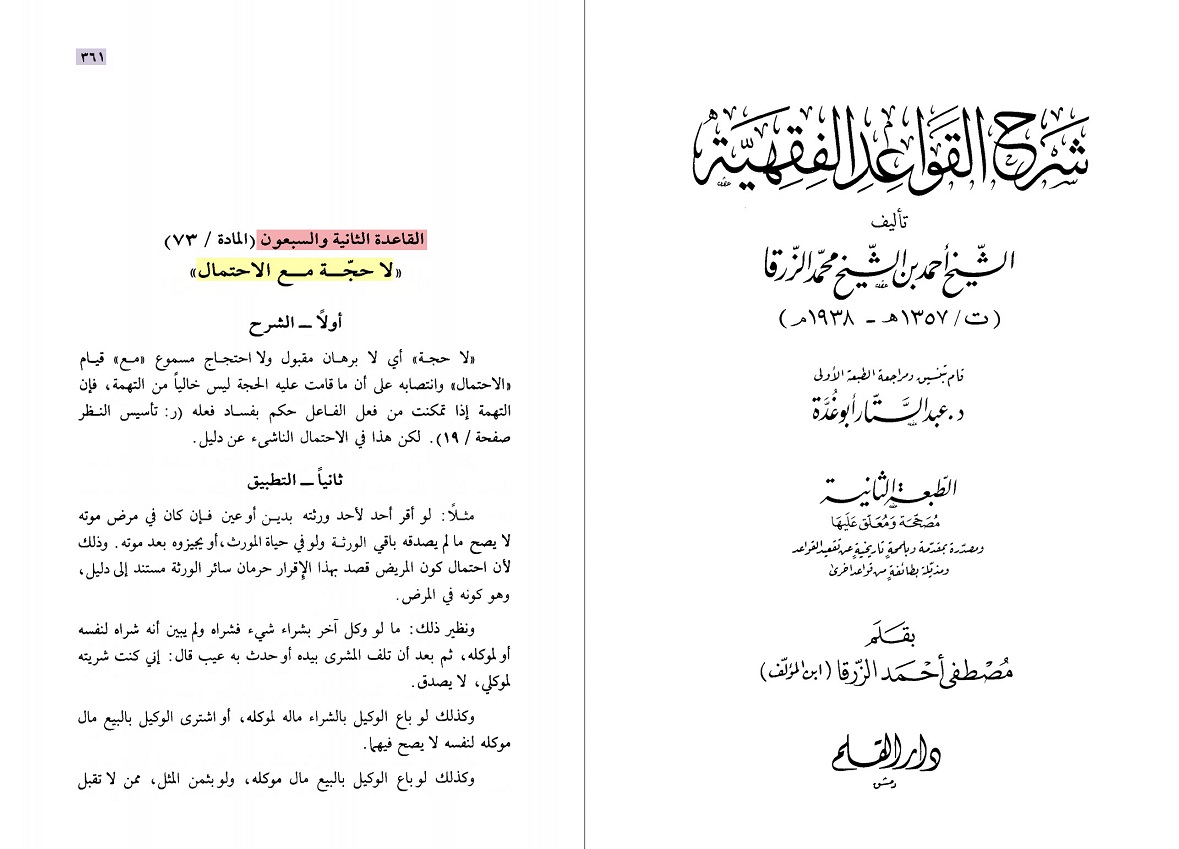 شرح القواعد الفقهية
تأليف
الشيخ أحمد بن الشيخ محمد الزرقا
(ت/ ١٣٥٧هـ - ١٩٣٨م)
قام بتنسيق ومراجعة الطبعة الأولى
د. عبد الستار أبو غدة
الطبعة الثانية
مصححة ومعلق عليها
ومصدرة بمقدمة وبلمحة تاريخية عن تقعيد القواعد
ومذيلة بطائفة من قواعد أخرى
بقلم
مصطفى أحمد الزرقا (ابن المؤلف)
دار القلم
دمشق
٣٦١
القاعدة الثانية والسبعون (المادة / ٧٣)
«لا حجّة مع الاحتمال»
أولاً ــ الشرح
«لا حجة» أي لا برهان مقبول ولا احتجاج مسموع «مع» قيام
«الاحتمال» وانتصابه على أن ما قامت عليه الحجة ليس خالياً من التهمة، فإن
التهمة إذا تمكنت من فعل الفاعل حكم بفساد فعله (ر: تأسيس النظر
صفحة / ١٩). لكن هذا في الاحتمال الناشىء عن دليل.
ثانياً ــ التطبيق
مثلًا: لو أقر أحد لأحد ورثته بدين أو عين فإن كان في مرض موته
لا يصح ما لم يصدقه باقي الورثة ولو في حياة المورث، أو يجيزوه بعد موته. وذلك
لأن احتمال كون المريض قصد بهذا الإقرار حرمان سائر الورثة مستند إلى دليل،
وهو كونه في المرض.
ونظير ذلك: ما لو وكل آخر بشراء شيء فشراه ولم يبين أنه شراه لنفسه
أو لموكله، ثم بعد أن تلف المشرى بيده أو حدث به عيب قال: إني كنت شريته
لموكلي، لا يصدق.
وكذلك لو باع الوكيل بالشراء ماله لموكله، أو اشترى الوكيل بالبيع مال
موكله لنفسه لا يصح فيهما.
وكذلك لو باع الوكيل بالبيع مال موكله، ولو بثمن المثل، ممن لا تقبل